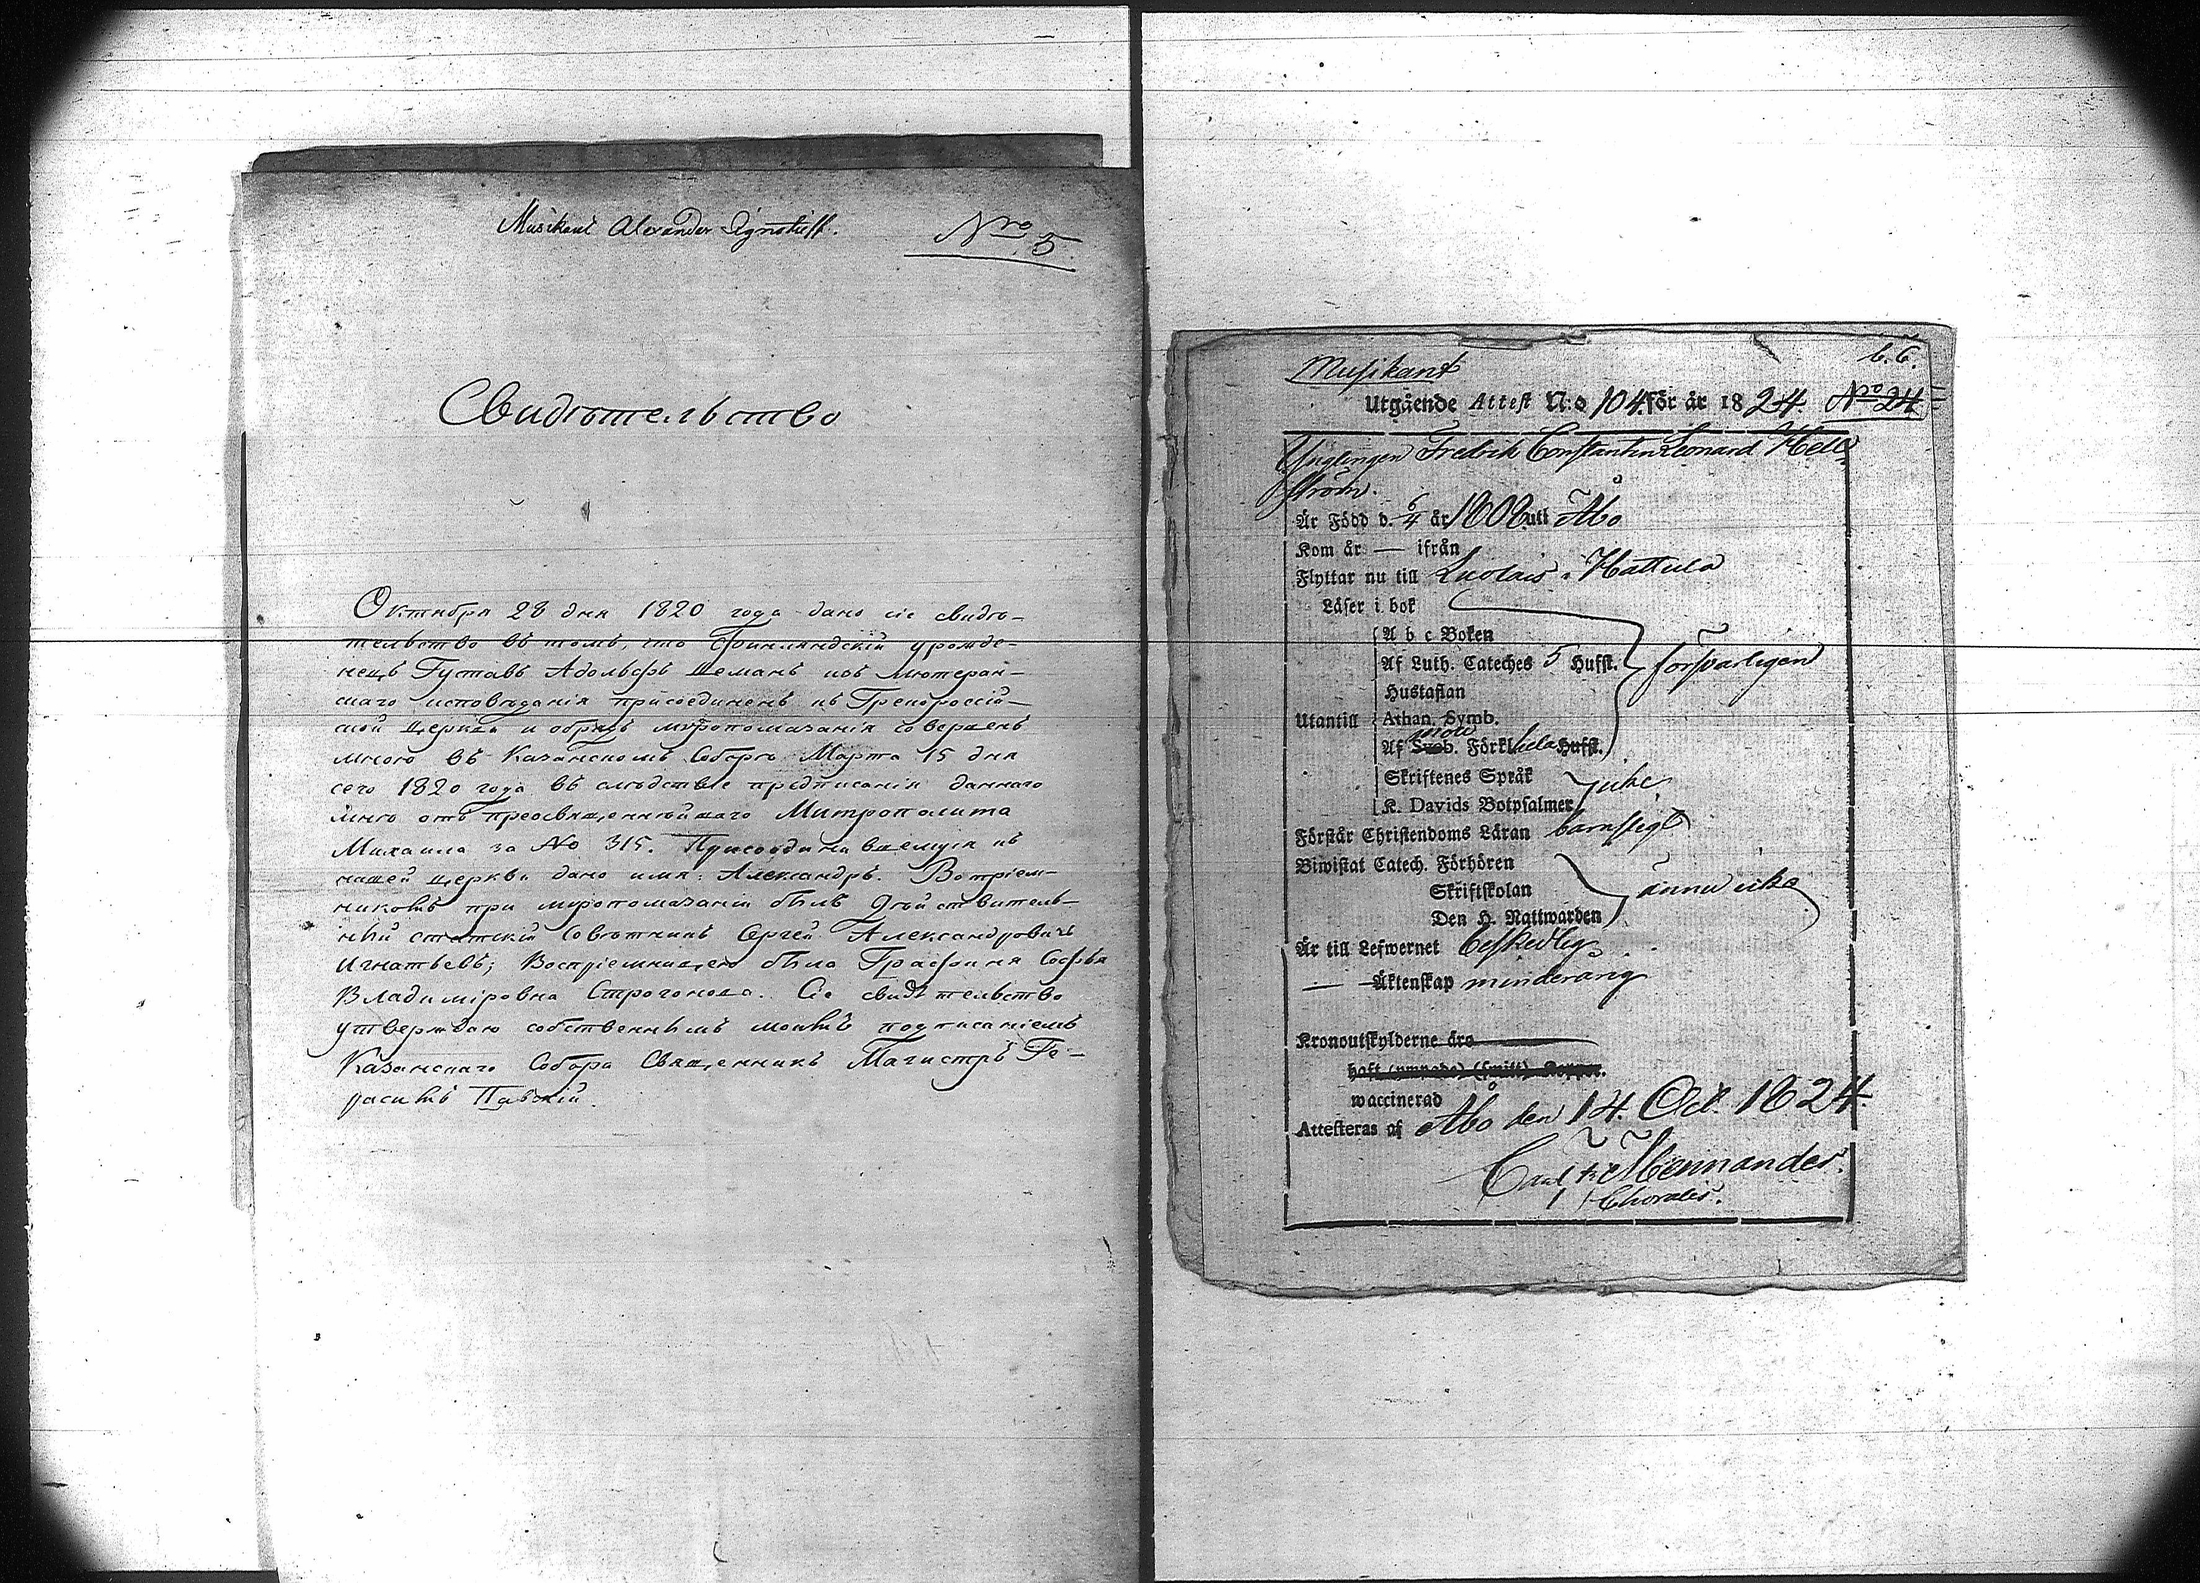 Musikant Alexander Ignatieff.
Nro 5.
Свидѣтельство
Октября 28 дня 1820 года дано сіе свидѣ-
тельство въ томъ, что Финляндскій урожде-
нецъ Густавъ Адольфъ Шеманъ изъ Лютеран-
скаго исповѣданія присоединенъ къ Грекороссій-
ской Церкви и обрядъ мѵропомазанія совершенъ
мною въ Казанскомъ Соборѣ Марта 15 дня
сего 1820 года въ слѣдствіе предписанія даннаго
мнѣ отъ преосвященнѣйшаго Митрополита
Михаила за No 315. Присоединившемуся къ
нашей церкви дано имя: Александръ. Воспріем-
никомъ при мѵропомазаніи былъ Дѣйствитель-
ный статскій Совѣтникъ Сергей Александровичь
Игнатьевъ; Воспріемницею была Графиня Софья
Владиміровна Строгонова. Сіе свидѣтельство
утверждаю собственнымъ моимъ подписаніемъ
Казанскаго Собора Священникъ Магистръ Ге-
расимъ Павскій.
b. 6.
Musikant
Utgående Attest N:o 104. för år 1824. No 24
Ynglingen Fredrik Constantin Leonard Hell-
ström.
Är Född d. 6/4 år 1808 uti Åbo
Kom år — ifrån
Flyttar nu till Luolais i Hattula
Läser i bok
A b c Boken
Af Luth. Cateches 5 Hufst. försvarligen
Hustaflan
Utantill Athan. Symb.
Af Förkl. hela Hufst.
Skriftenes Språk icke
K. Davids Botpsalmer
Förstår Christendoms Läran barnsligt
Biwistat Catech. Förhören
Skriftskolan ännu icke
Den H. Nattwarden
Är till Lefwernet beskedlig
— Äktenskap minderårig
Kronoutskylderne äro
haft (ympade) (smitt) Koppor.
waccinerad
Attesteras af Åbo den 14. Oct. 1824.
Carl Fr. Mennander.
Choralis.